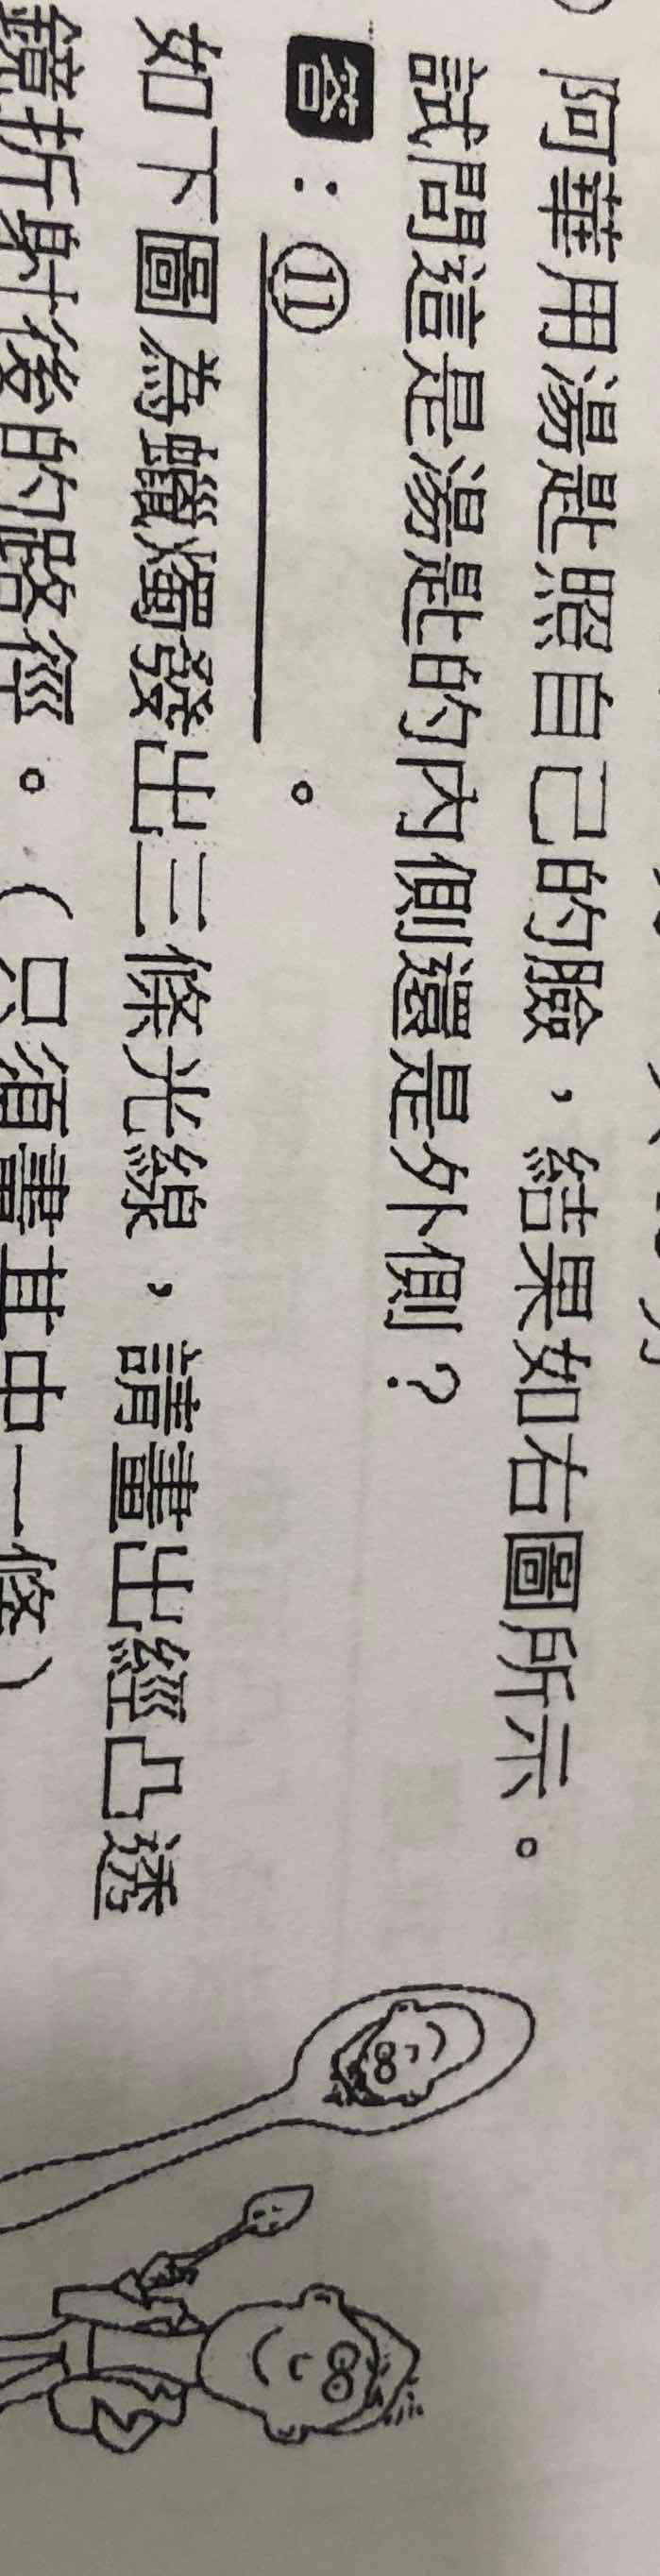 阿華用湯匙照自己的臉，結果如右圖所示。
試問這是湯匙的內側還是外側？
答：⑪　　　　。
如下圖為蠟燭發出三條光線，請畫出經凸透
鏡折射後的路徑。（只須畫其中一條）